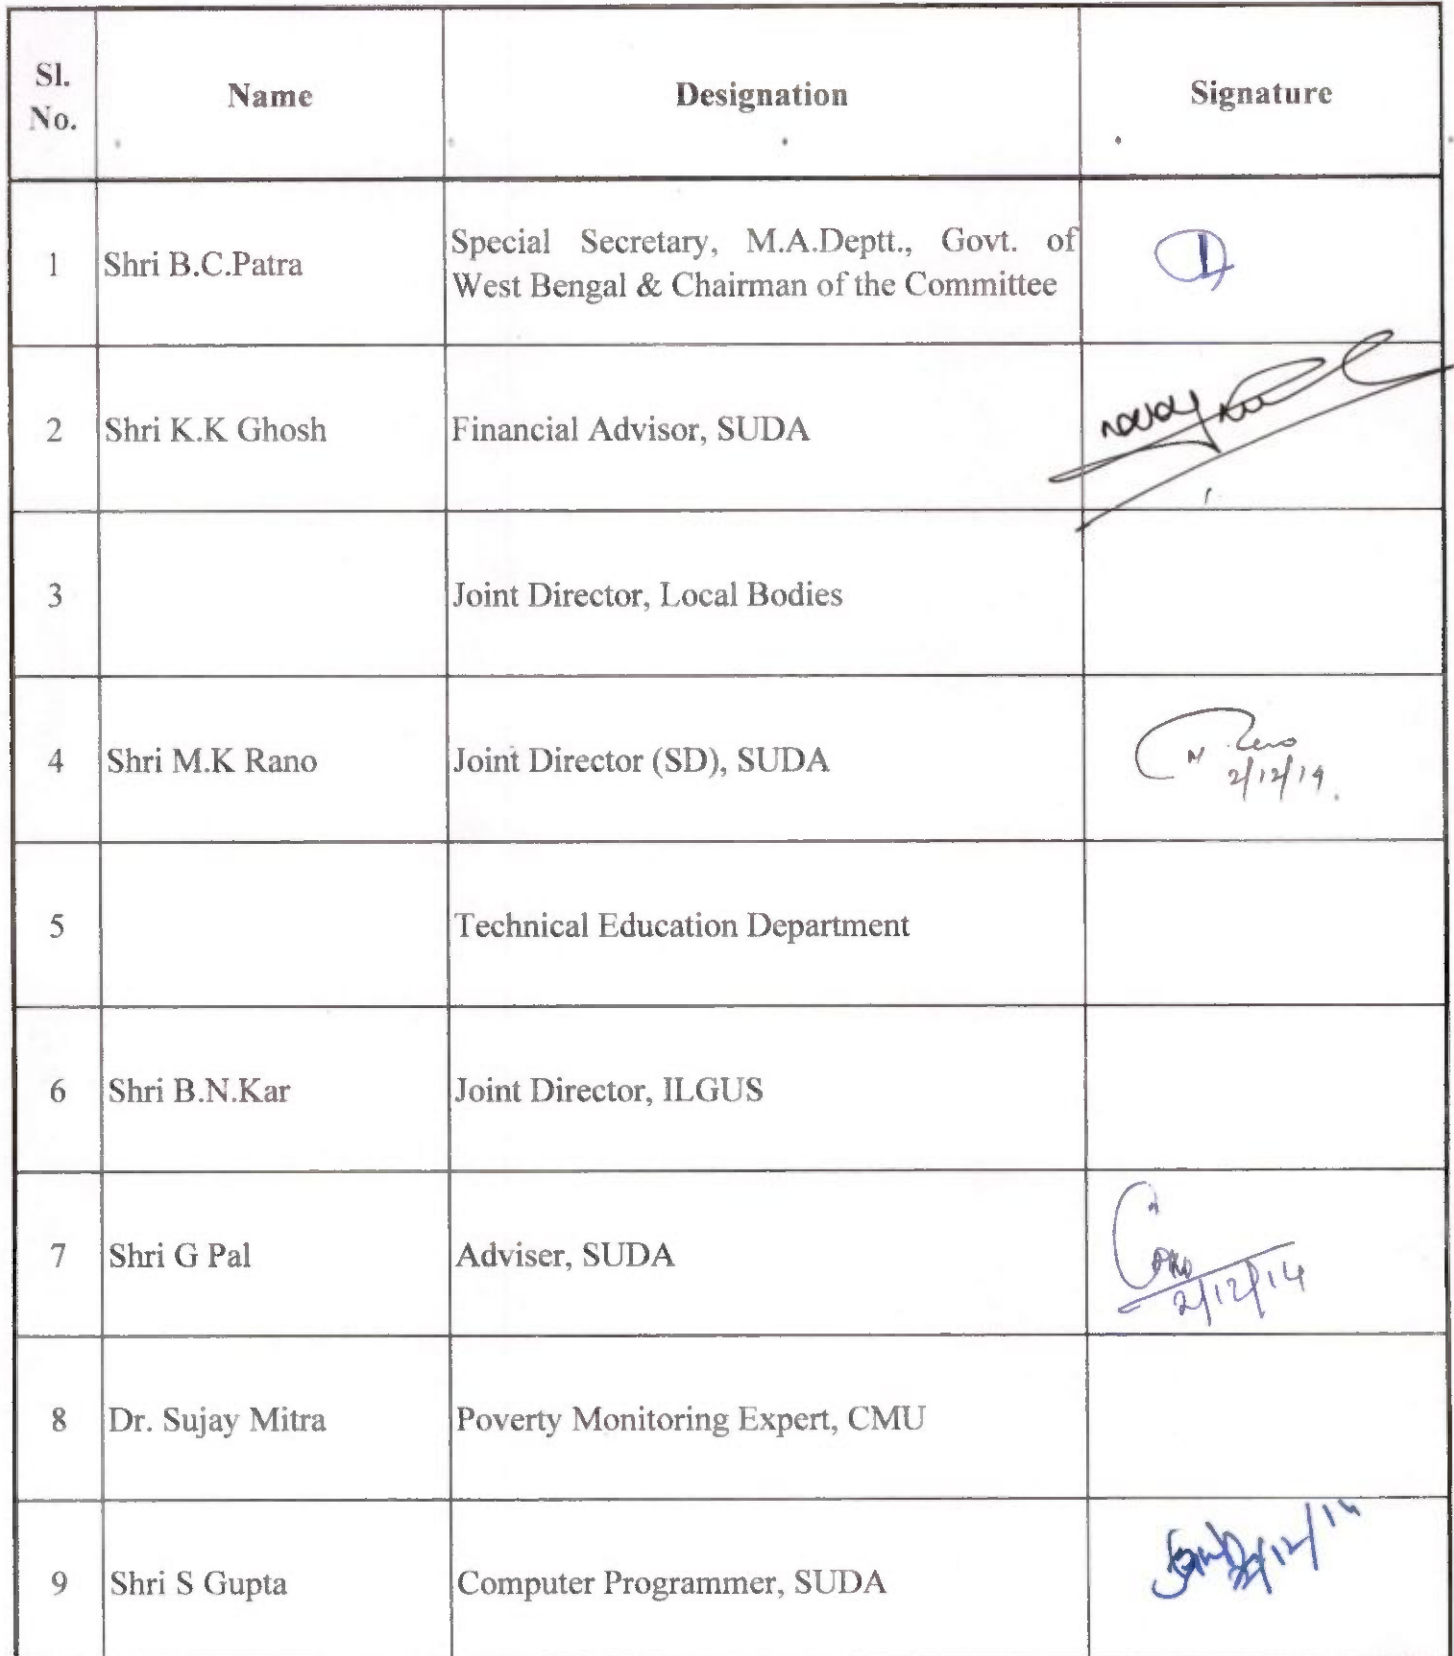 Sl. No. Name Designation Signature
1 Shri B.C.Patra Special Secretary, M.A.Deptt., Govt. of
West Bengal & Chairman of the Committee
2 Shri K.K Ghosh Financial Advisor, SUDA
3 Joint Director, Local Bodies
4 Shri M.K Rano Joint Director (SD), SUDA
2/12/14.
5 Technical Education Department
6 Shri B.N.Kar Joint Director, ILGUS
7 Shri G Pal Adviser, SUDA
2/12/14
8 Dr. Sujay Mitra Poverty Monitoring Expert, CMU
9 Shri S Gupta Computer Programmer, SUDA
2/12/14